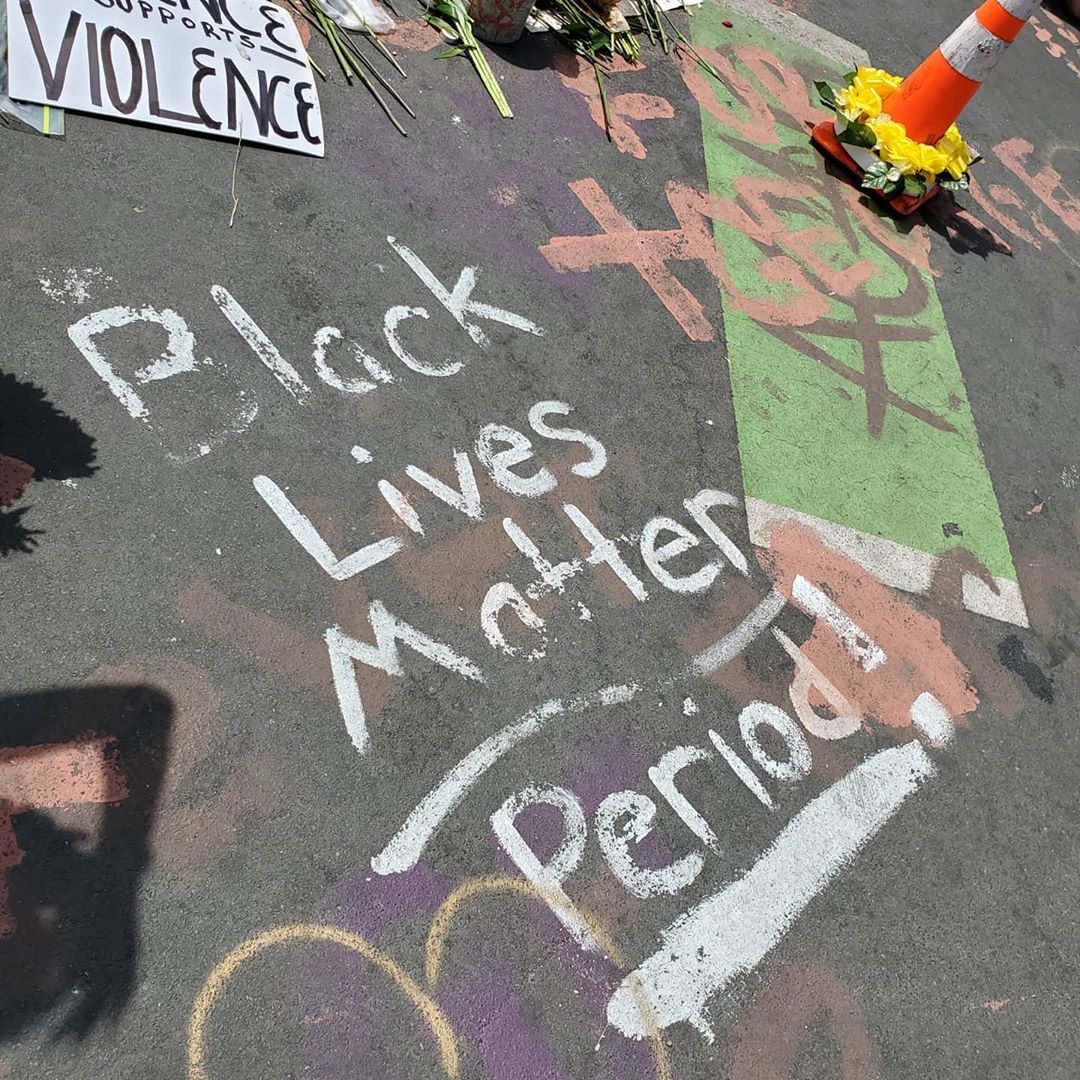 ENCE
SUPPORTS
VIOLENCE
Black
Lives
Matter
Period!